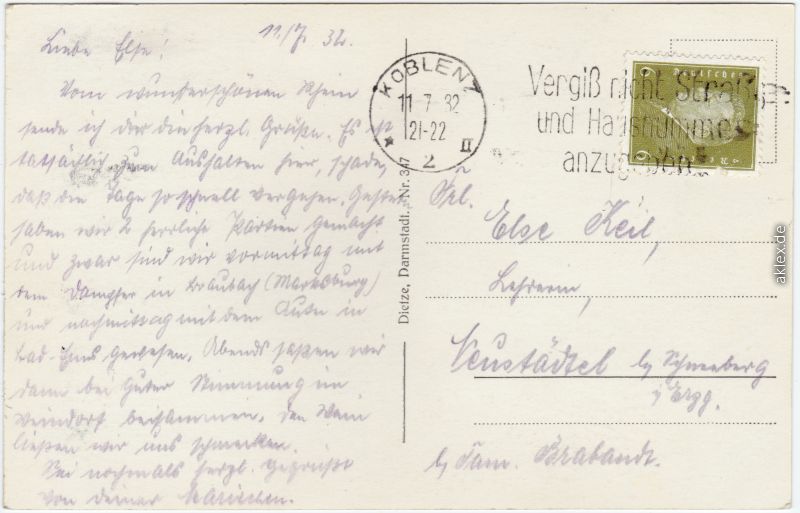 11./7. 32.
Liebe Else!
Vom wunderschönen Rhein
sende ich dir die herzl. Grüße. Es ist
tatsächlich zum Aushalten hier, schade,
daß die Tage so schnell vergehen. Gestern
haben wir 2 herrliche Partien gemacht
und zwar sind wir vormittag mit
dem Dampfer in Braubach (Marksburg)
und nachmittag mit dem Auto in
Bad-Ems gewesen. Abends saßen wir
dann bei guter Stimmung im
Weindorf beisammen. Den Wein
ließen wir uns schmecken.
Sei nochmals herzl. gegrüßt
von deiner Mariechen.
Dietze, Darmstadt. Nr. 347
KOBLENZ
11.7.32
21-22
* 2 II
Vergiß nicht Straße
und Hausnummer
anzugeben
6 6
Frl.
Else Keil,
Lehrerin,
Neustädtel b/ Schneeberg
i/ Erzg.
b/ Fam. Brabandt.
aklex.de